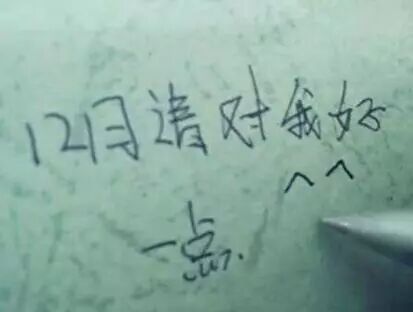 12月请对我好
^^
一点.